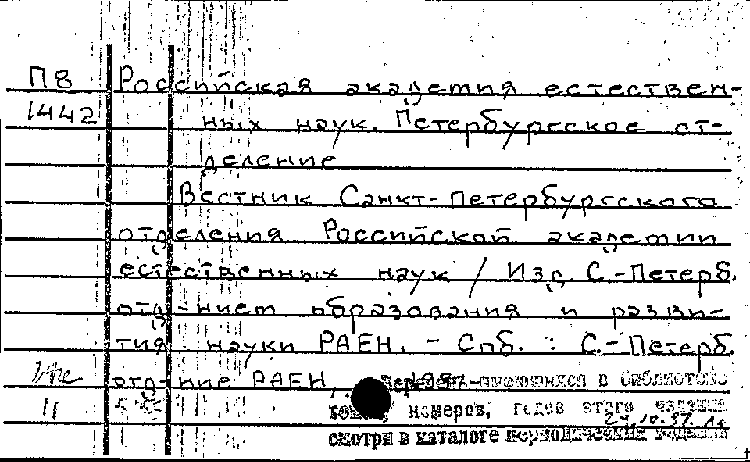 П8 Российская академия естествен-
1442 ных наук. Петербургское от-
деление
Вестник Санкт-Петербургского
отделения Российской академии
естественных наук / Изд. С.-Петерб.
отд-нием образования и разви-
тия науки РАЕН. - Спб. : С.-Петерб.
отд-ние РАЕН, 1997
Перечень имеющихся в библиотеке
томов, номеров, годов этого издания
смотри в каталоге периодических изданий
11